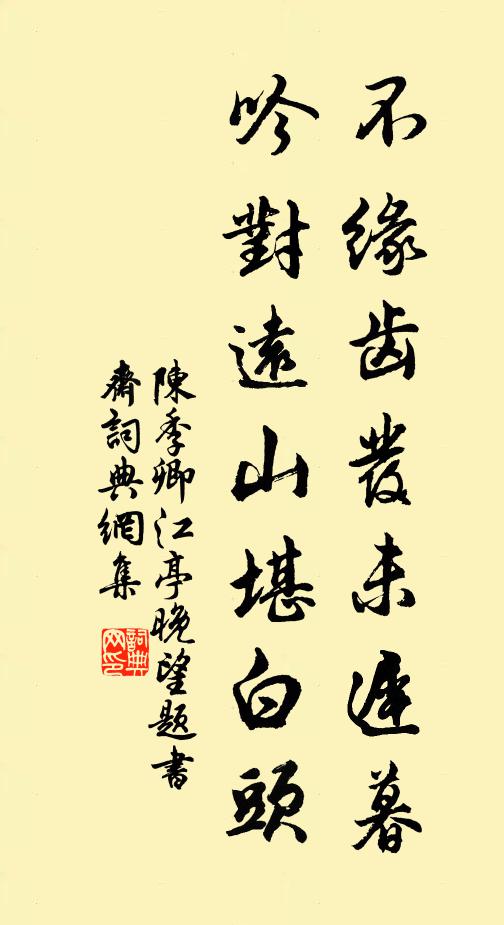 不緣齒發未遲暮
吟對遠山堪白頭
陳季卿江亭晚望題書
齋詞典網集
詞典
网印